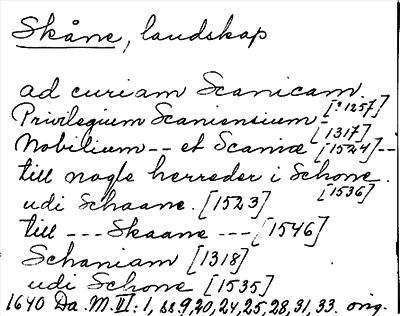 Skåne, landskap
ad curiam Scanicam [?1257]
Privilegium Scaniensium [1317]
Nobilium -- et Scaniæ [1524] --
till nogle herreder i Schone [1536]
udi Schaane. [1523]
till --- Skaane --- [1546]
Schaniam [1318]
udi Schone [1535]
1640 Da. M. III: 1, ss. 9, 20, 24, 25, 28, 31, 33. orig.